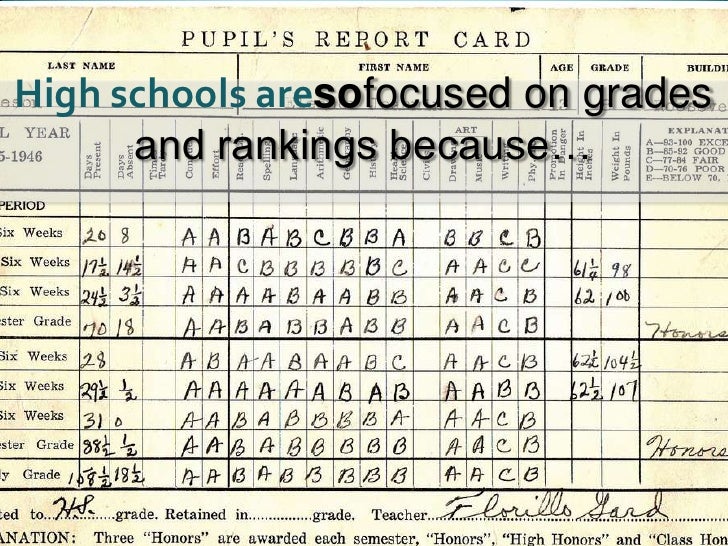 PUPIL'S REPORT CARD
LAST NAME FIRST NAME AGE GRADE BUILDI
High schools are so focused on grades
and rankings because…
L YEAR
5-1946
Days Present Days Absent Times Tardy Conduct Effort Reading Spelling Language Arithmetic Geography History Health Science Civics ART Drawing Music Writing Phys. Promotion In Danger Height In Inches Weight In Pounds
EXPLANA
A—93-100 EXCE
B—85-92 GOOD
C—77-84 FAIR
D—70-76 POOR
E—BELOW 70.
PERIOD
Six Weeks 20 8 A A B A B C B B A B B C B
Six Weeks 17½ 14½ A A C B B B B B C A A C C 61¼ 98
Six Weeks 24½ 3½ A A A A B A A B B A A C B 62 100
ester Grade 70 18 A A B A B B A B B A A C B Honors
Six Weeks 28 A B A A B A A B C A A C B 62½ 104½
Six Weeks 29½ ½ A A A A A A B A B A A B B 62½ 107
Six Weeks 31 0 A A B A B B B B A A A C B
ester Grade 88½ ½ A A B A B B B B B A A C B Honors
ly Grade 18½ A A B A B B B B B A A C B
ted to H.S. grade. Retained in grade. Teacher Florillo Gard
ANATION: Three "Honors" are awarded each semester, "Honors", "High Honors" and "Class Hon